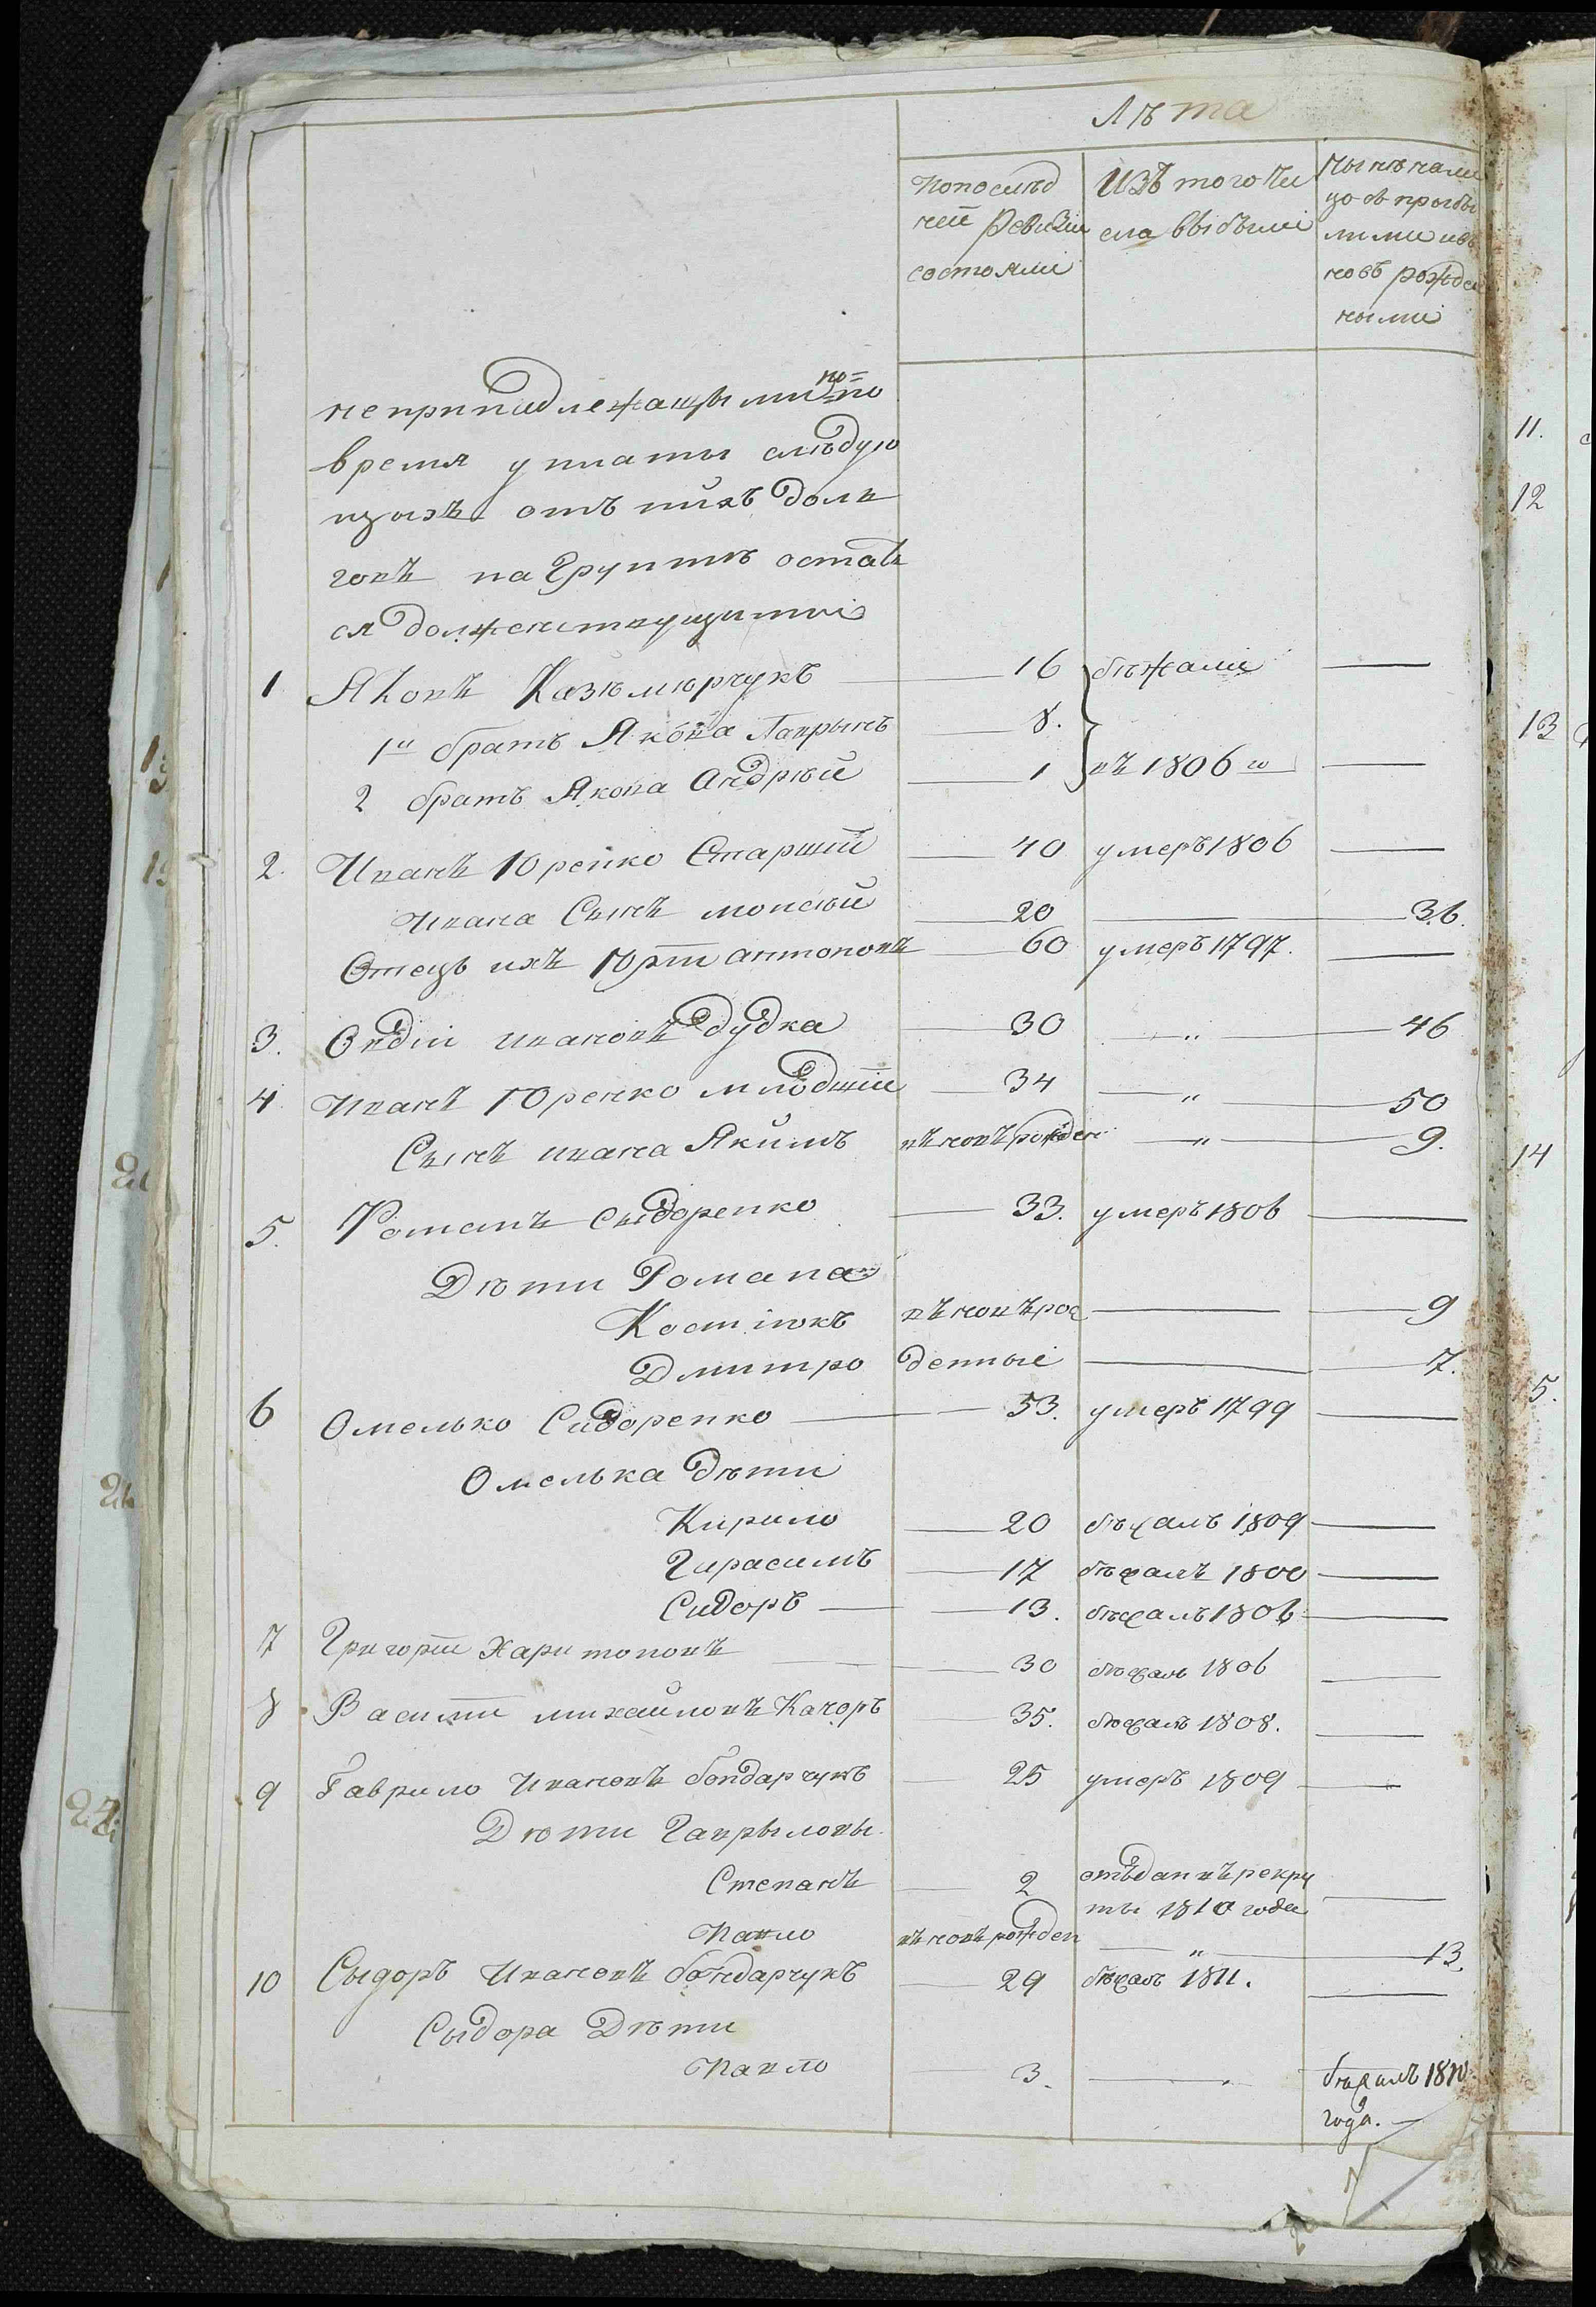 Лѣта
попослѣд
ней Ревизіи
состояли
Изъ того чи
сла выбыли
Нынѣ нали
цо съ прибы
лими и въ
новъ рожден
ными
непринадлежащыми по=
=по
время уплаты слѣдую
щыхъ отъ нихъ дол
говъ на Грунтѣ остать
ся долженствующими
1 Яковъ Казѣмѣрчукъ 16 бѣжали —
1й братъ Якова Гаврынъ 8.
2 братъ Якова Андрѣй 1 въ 1806 го —
2. Иванъ Юренко Старшій 40 умеръ 1806 —
Ивана Сынъ моисѣй 20 — 36.
Отецъ ихъ Юрій антоновъ 60 умеръ 1797. —
3. Овдіи ивановъ Дудка 30 — 46
4. Иванъ Юренко младшій 34 — 50
Сынъ ивана Якимъ въновъ рожден — 9.
5. Романъ Сыдоренко 33. умеръ 1806 —
Дѣти Романа
Костюкъ въновъ рож — 9
Дмитро денные — 7.
6 Омелько Сидоренко 53. умеръ 1799 —
Омелька Дѣти
Кирило 20 бѣжалъ 1809 —
Гирасимъ 17 бѣжалъ 1800 —
Сидоръ 13. бѣжалъ 1806 —
7 Григорій Харитоновъ 30 бѣжалъ 1806 —
8 Василій михайловъ Качоръ 35. бѣжалъ 1808. —
9 Гаврило Ивановъ бондарчукъ 25 умеръ 1809 —
Дѣти Гаврыловы
Степанъ 2 отъдан въ рекру —
ты 1810 года
Павло въновъ рожден — " — 13.
10 Сыдоръ Ивановъ бондарчукъ 29 бѣжалъ 1811. —
Сыдора Дѣти
Павло 3. — бѣжалъ 1810
года. —
11.
12
13
14
5.